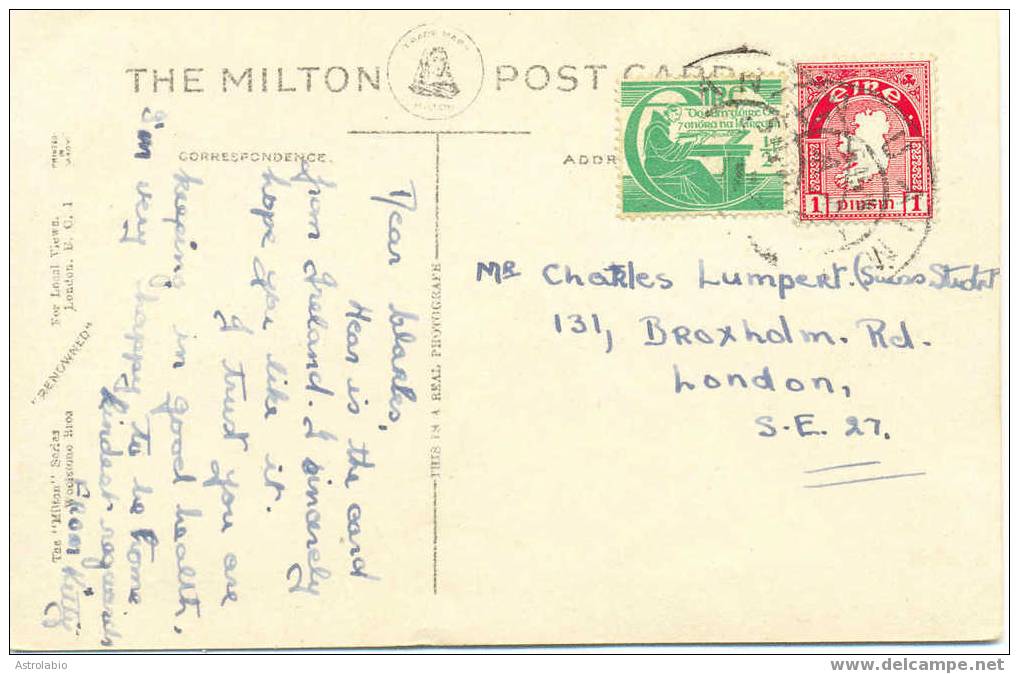 THE MILTON POST CARD
TRADE MARK
MILTON
CORRESPONDENCE.
Dear blarles,
Hear is the card
from Ireland. I sincerely
hope you like it.
I trust you are
keeping in good health,
I'm very happy to be home
kindest regards
From Kitty
PRINTED
IN
The "Milton" Series
Woolstone Bros
"RENOWNED"
For Local Views.
London. E. C. 1
THIS IS A REAL PHOTOGRAPH
ADDR
Do ċum glóire Dé
7 onóra na hÉireann
ÉIRE
1 PINGIN 1
MR Charles Lumpert. (Swiss Student
131, Broxholm. Rd.
London,
S.E. 27.
Astrolabio
www.delcampe.net